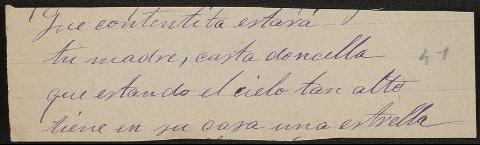 Que contentita estará
tu madre, casta doncella
41
que estando el cielo tan alto
tiene en su casa una estrella